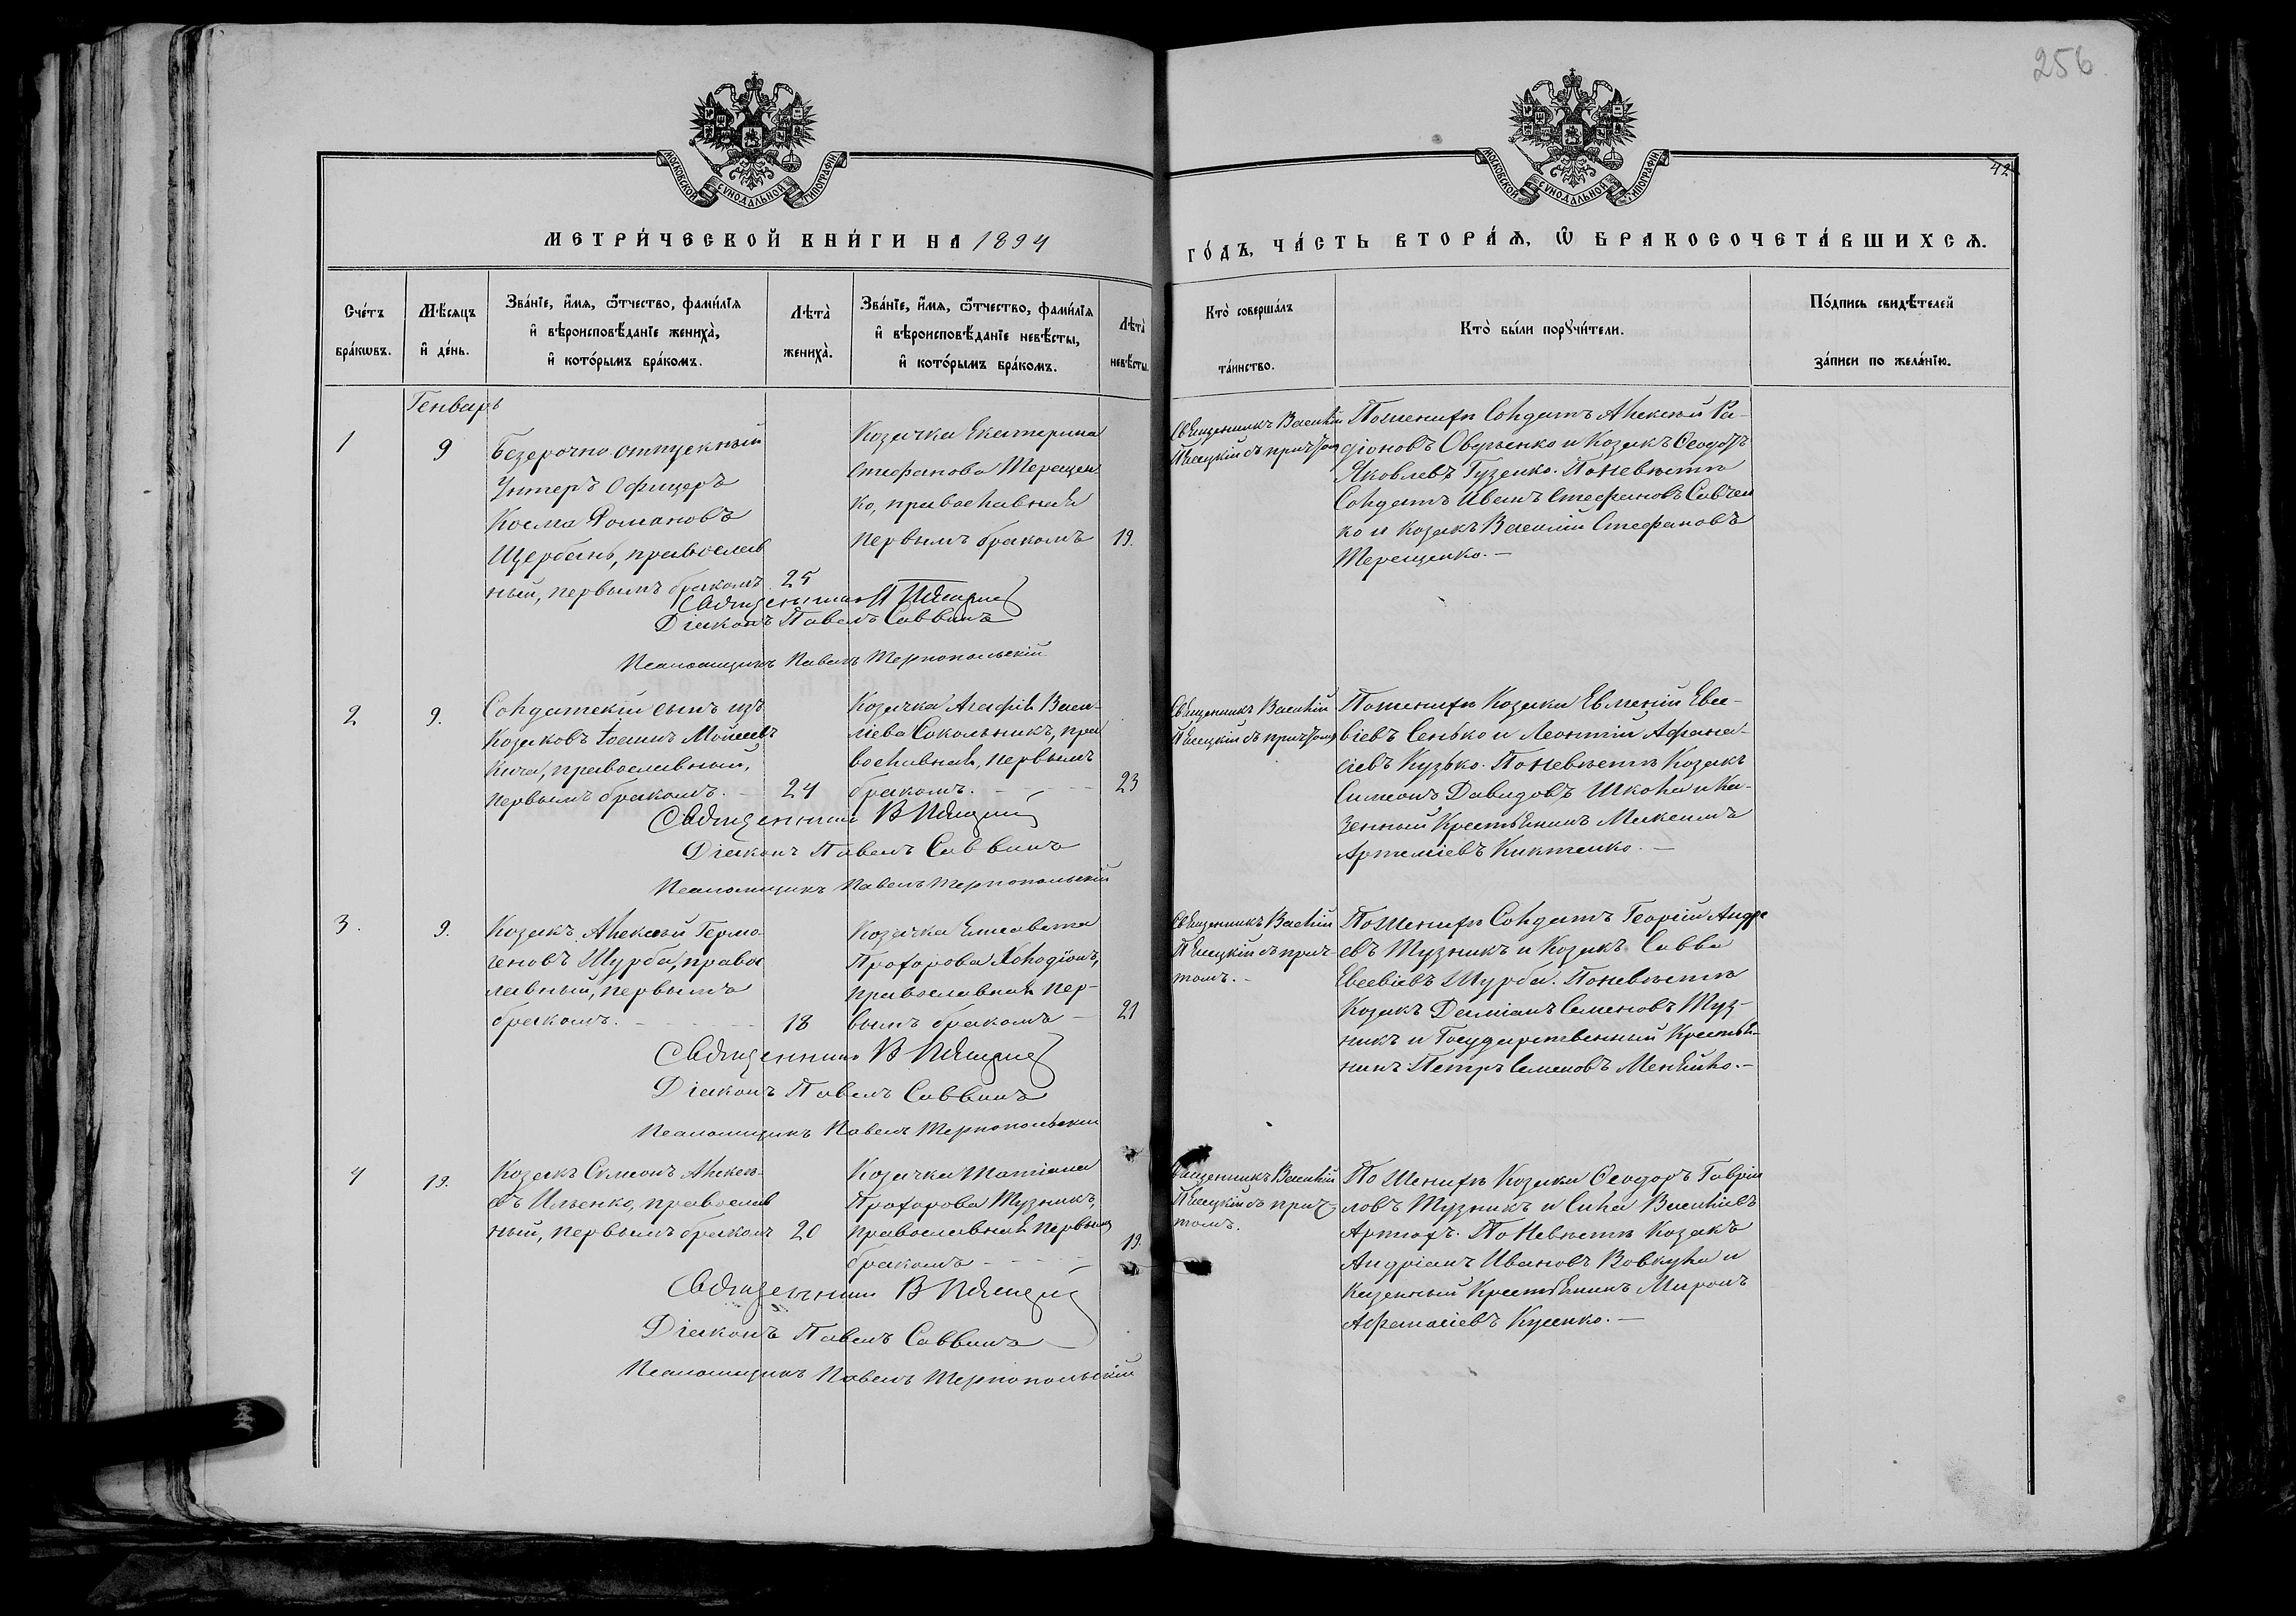 256
42
МОСКОВСКОЙ СѴНОДАЛЬНОЙ ТИПОГРАФІИ
МЕТРИЧЕСКОЙ КНИГИ НА 1894
Счетъ браковъ.
Мѣсяцъ и день.
Званіе, имя, отчество, фамилія
и вѣроисповѣданіе жениха,
и которымъ бракомъ.
Лѣта жениха.
Званіе, имя, отчество, фамилія
и вѣроисповѣданіе невѣсты,
и которымъ бракомъ.
Лѣта невѣсты.
МОСКОВСКОЙ СѴНОДАЛЬНОЙ ТИПОГРАФІИ
ГОДЪ, ЧАСТЬ ВТОРАЯ, Ѡ БРАКОСОЧЕТАВШИХСЯ.
Кто совершалъ
таинство.
Кто были поручители.
Подпись свидѣтелей
записи по желанію.
Генварь
1
9
Безсрочно отпускный
Унтеръ Офицеръ
Косма Романовъ
Щербань, православ
ный, первымъ бракомъ
25
Козачка Екатерина
Стефанова Терещен
ко, православная
первымъ бракомъ
19.
Священникъ Василій
Пясецкій съ причтом
По женихѣ Солдатъ Алексѣй Ра-
діоновъ Оверьенко и Козакъ Ѳеодоръ
Яковлевъ Гузенко. По невѣстѣ
Солдатъ Иванъ Стефановъ Савчен
ко и Козакъ Василій Стефановъ
Терещенко. —
Священникъ В Пясецкій
Діаконъ Павелъ Саввинъ
Псаломщикъ Павелъ Тернопольскій
2
9.
Солдатскій сынъ изъ
Козаковъ Іоаннъ Моисеевъ
Кича, православный,
первымъ бракомъ. —
24
Козачка Агафія Васи-
ліева Сокольникъ, пра
вославная, первымъ
бракомъ.
23
Священникъ Василій
Пясецкій съ причтом
По женихѣ Козаки Евменій Евсе-
віевъ Сенько и Леонтій Афана-
сіевъ Кузько. По невѣстѣ Козакъ
Симеонъ Давидовъ Школа и Ка-
зенный Крестьянинъ Максимъ
Артеміевъ Киктенко. —
Священникъ В Пясецкій
Діаконъ Павелъ Саввинъ
Псаломщикъ Павелъ Тернопольскій
3.
9.
Козакъ Алексѣй Гермо-
геновъ Шурба, правос
лавный, первымъ
бракомъ.
18
Козачка Елисавета
Прохорова Холодіонъ,
православная пер-
вымъ бракомъ —
21
Священникъ Василій
Пясецкій съ прич-
томъ. -
По женихѣ Солдатъ Георгій Андре
евъ Тузникъ и Козакъ Савва
Евсевіевъ Шурба. По невѣстѣ
Козакъ Даміанъ Семеновъ Туз-
никъ и Государственный Крестья-
нинъ Петръ Семеновъ Меняйло. —
Священникъ В Пясецкій
Діаконъ Павелъ Саввинъ
Псаломщикъ Павелъ Тернопольскій
4
19.
Козакъ Симеонъ Алексѣ-
евъ Ильенко, православ
ный, первымъ бракомъ
20
Козачка Татіана
Прохорова Тузникъ,
православная первымъ
бракомъ
19.
Священникъ Василій
Пясецкій съ прич
томъ.
По женихѣ Козаки Ѳеодоръ Гаврии
ловъ Тузникъ и Сила Васильевъ
Артюхъ. По невѣстѣ Козакъ
Андріанъ Ивановъ Вовкула и
Казенный Крестьянинъ Миронъ
Афанасіевъ Куценко. —
Священникъ В Пясецкій
Діаконъ Павелъ Саввинъ
Псаломщикъ Павелъ Тернопольскій